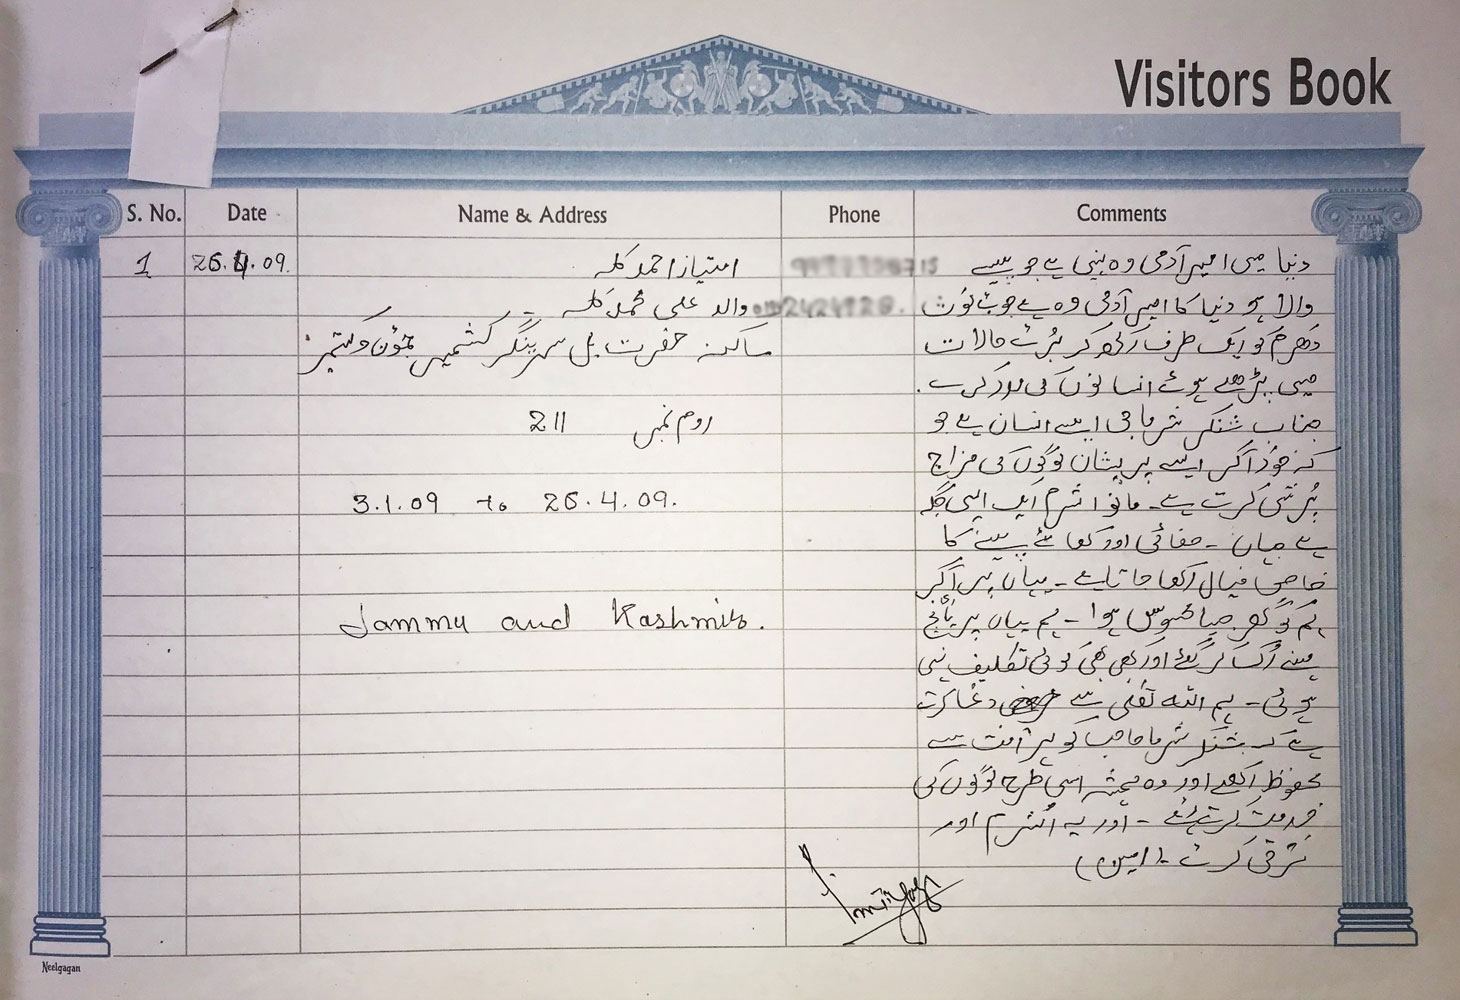 Visitors Book
S. No. Date Name & Address Phone Comments
1 26.4.09. امتیاز احمد کلہ
والد علی محمد کلہ
ساکنہ حضرت بل سرینگر کشمیر جموں و کشمیر
روم نمبر 211
3.1.09 to 26.4.09.
Jammu and Kashmir.
دنیا میں امیر آدمی وہ نہیں ہے جو پیسے
والا ہو دنیا کا امیر آدمی وہ ہے جو
دھرم کو ایک طرف رکھ کر بُرے حالات
میں پڑھے ہوئے انسانوں کی مدد کرے.
جناب شنکر شرما جی ایسے انسان ہے جو
کہ خود آکر ایسے پریشان لوگوں کی مزاج
پُرشی کرتے ہے۔ مانو اشرم ایک ایسی جگہ
ہے جہاں۔ صفائی اور کھانے پینے کا
خاص خیال رکھا جاتا ہے۔ یہاں پر آکر
ہم کو گھر جیسا محسوس ہوا۔ ہم یہاں پر پانچ
مہینے رُک کر گئے اور کبھی بھی کوئی تکلیف نہیں
ہوئی۔ ہم اللہ تعلٰی سے دعا کرتے
ہے کہ شنکر شرما صاحب کو ہر آفت سے
محفوظ رکھے اور وہ ہمیشہ اسی طرح لوگوں کی
خدمت کرتے رہے۔ اور یہ اشرم اور
ترقی کرے۔ (امین)
Imtiyaz
Neelgagan